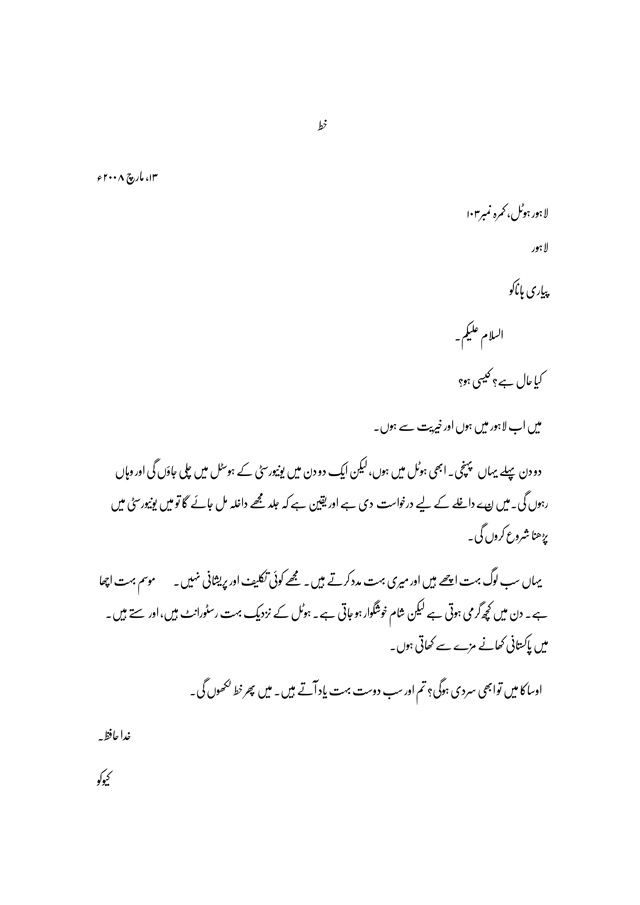 خط
۱۳، مارچ ۲۰۰۸ء
لاہور ہوٹل، کمرہ نمبر ۱۰۳
لاہور
پیاری ہاناکو
السلام علیکم۔
کیا حال ہے؟ کیسی ہو؟
میں اب لاہور میں ہوں اور خیریت سے ہوں۔
دو دن پہلے یہاں پہنچی۔ ابھی ہوٹل میں ہوں، لیکن ایک دو دن میں یونیورسٹی کے ہوسٹل میں چلی جاؤں گی اور وہاں
رہوں گی۔ میں نے داخلے کے لیے درخواست دی ہے اور یقین ہے کہ جلد مجھے داخلہ مل جائے گا تو میں یونیورسٹی میں
پڑھنا شروع کروں گی۔
یہاں سب لوگ بہت اچھے ہیں اور میری بہت مدد کرتے ہیں۔ مجھے کوئی تکلیف اور پریشانی نہیں۔ موسم بہت اچھا
ہے۔ دن میں کچھ گرمی ہوتی ہے لیکن شام خوشگوار ہو جاتی ہے۔ ہوٹل کے نزدیک بہت رسٹورانٹ ہیں، اور سستے ہیں۔
میں پاکستانی کھانے مزے سے کھاتی ہوں۔
اوساکا میں تو ابھی سردی ہوگی؟ تم اور سب دوست بہت یاد آتے ہیں۔ میں پھر خط لکھوں گی۔
خدا حافظ۔
کیوکو